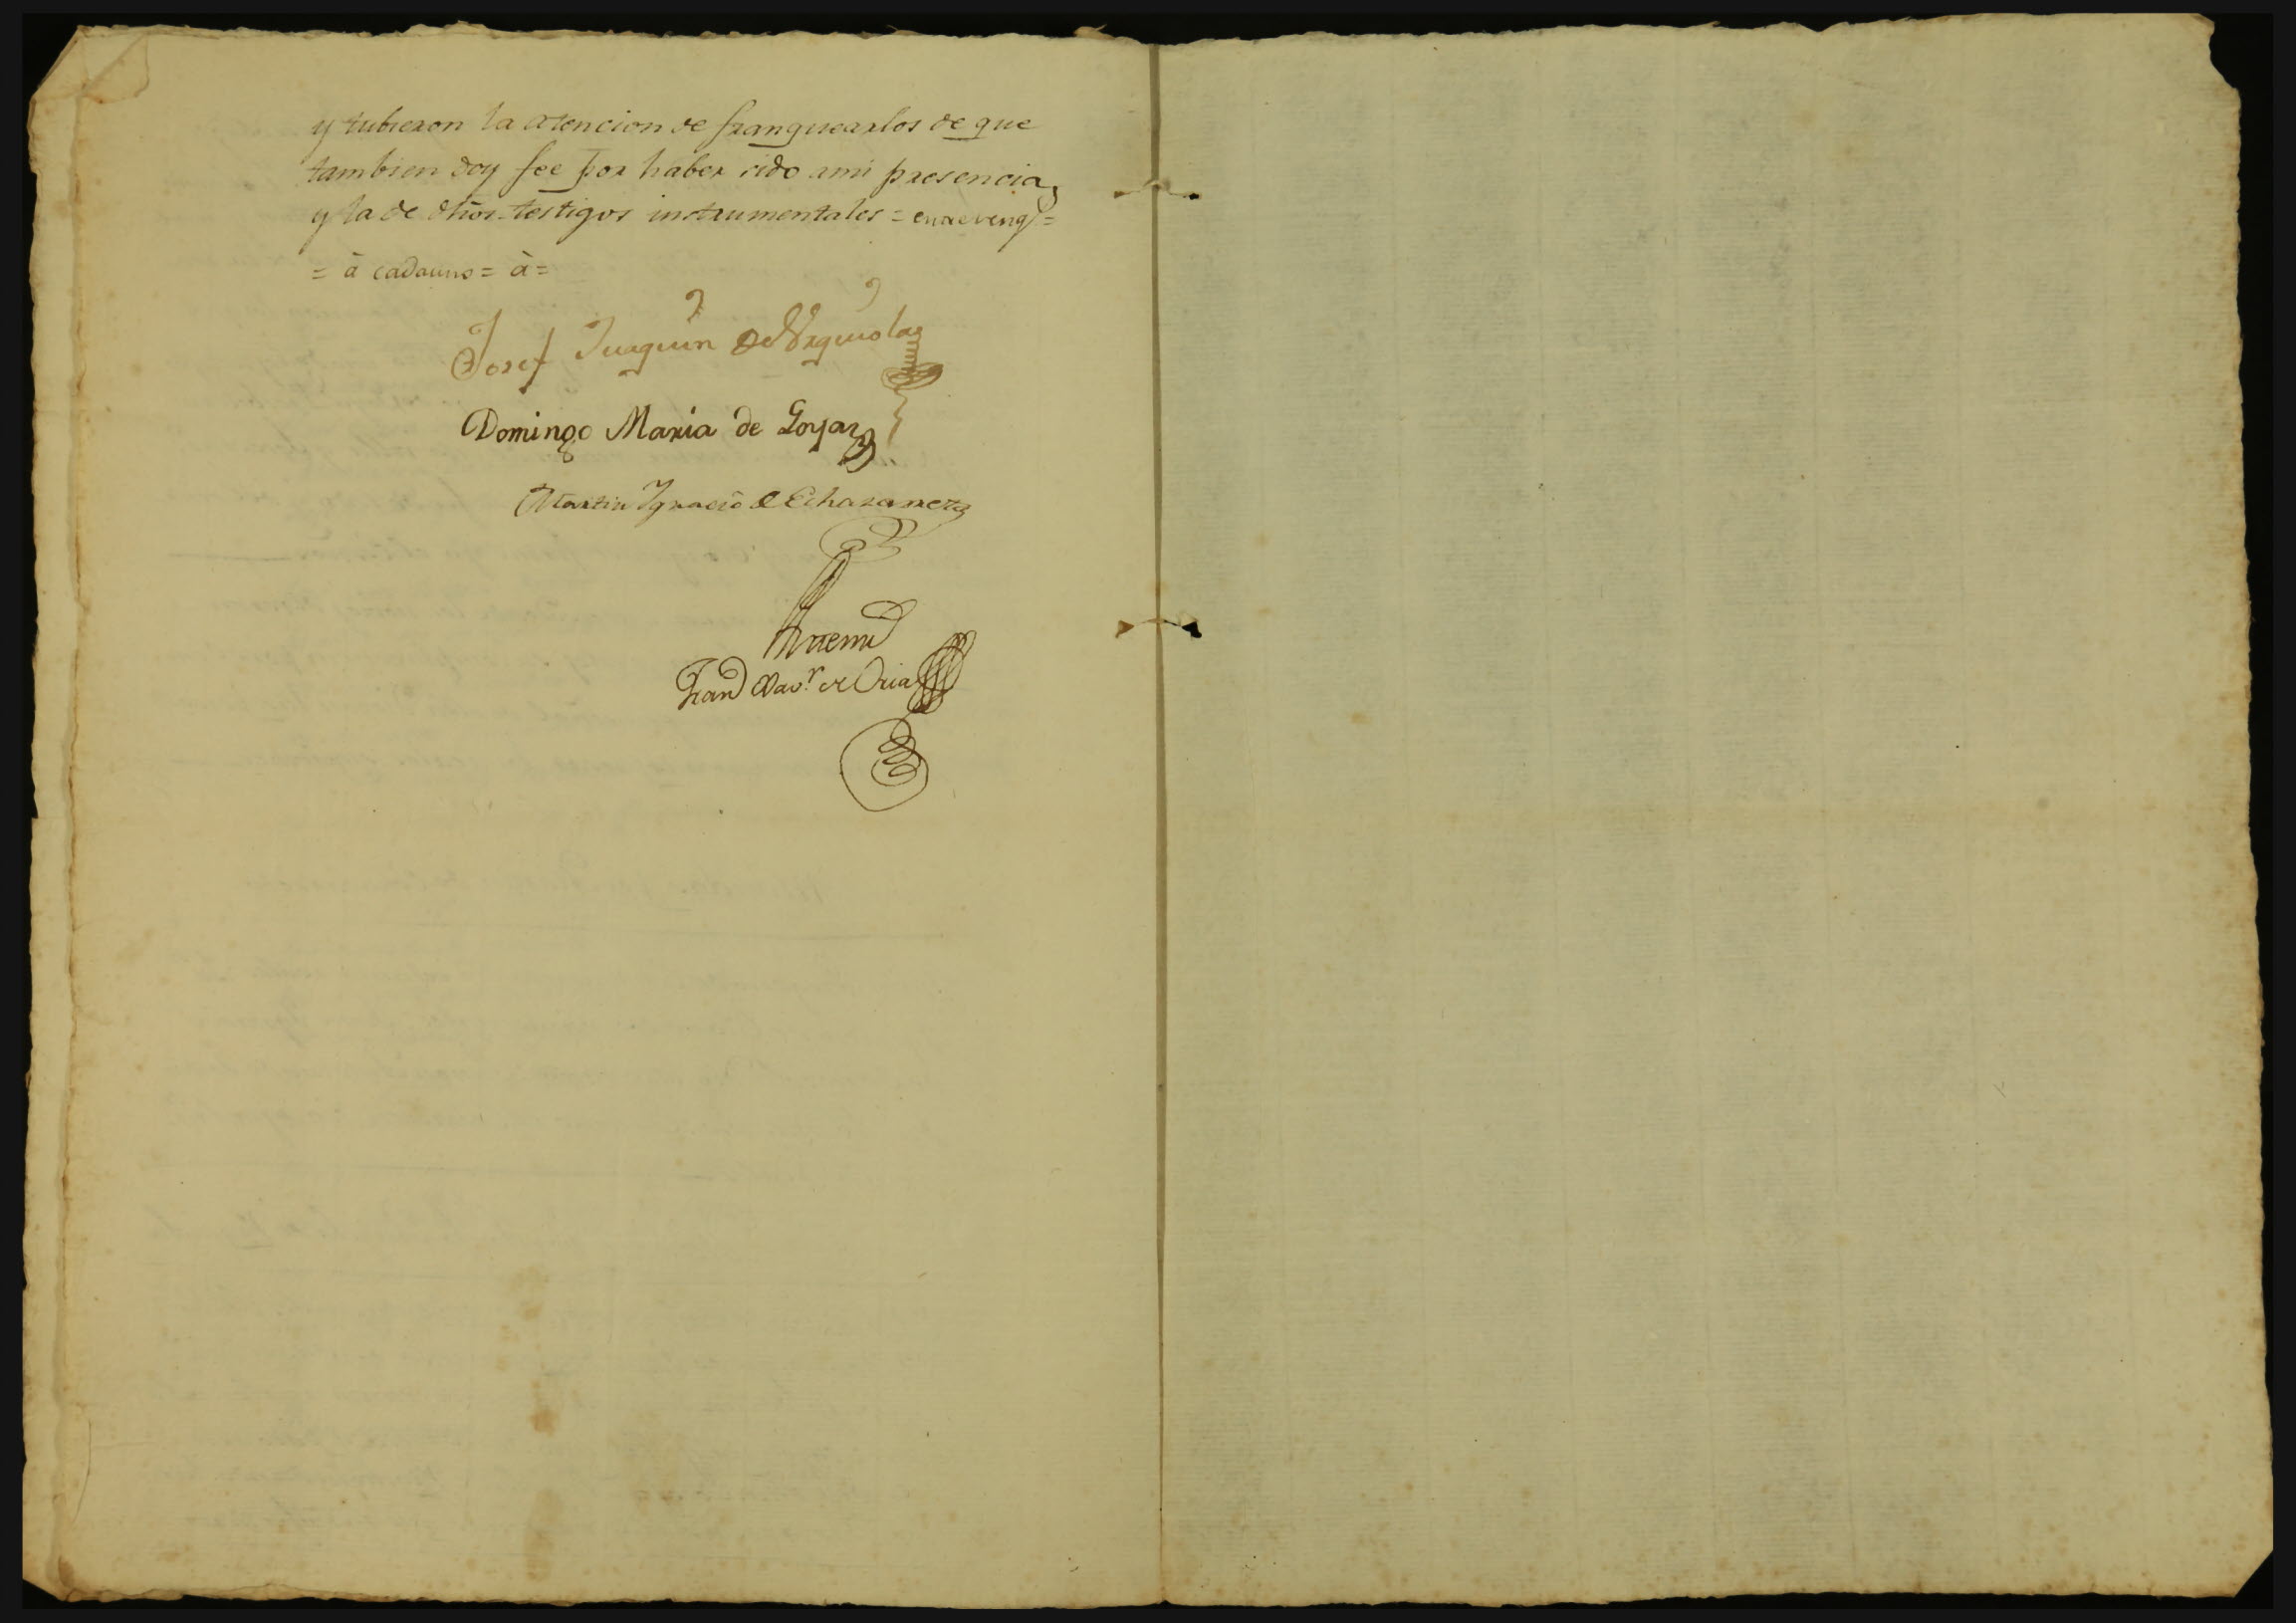 y tubieron la atencion de franquearlos de que
tambien doy fee por haber sido ami presencia,
y la de dhōs testigos instrumentales = entrereng =
= à cadauno = à =
Josef Juaquin de Urquiola
Domingo Maria de Goyaz
Martin Ygnacio de Echazarreta
Antemi
Fran Xavr de Oria